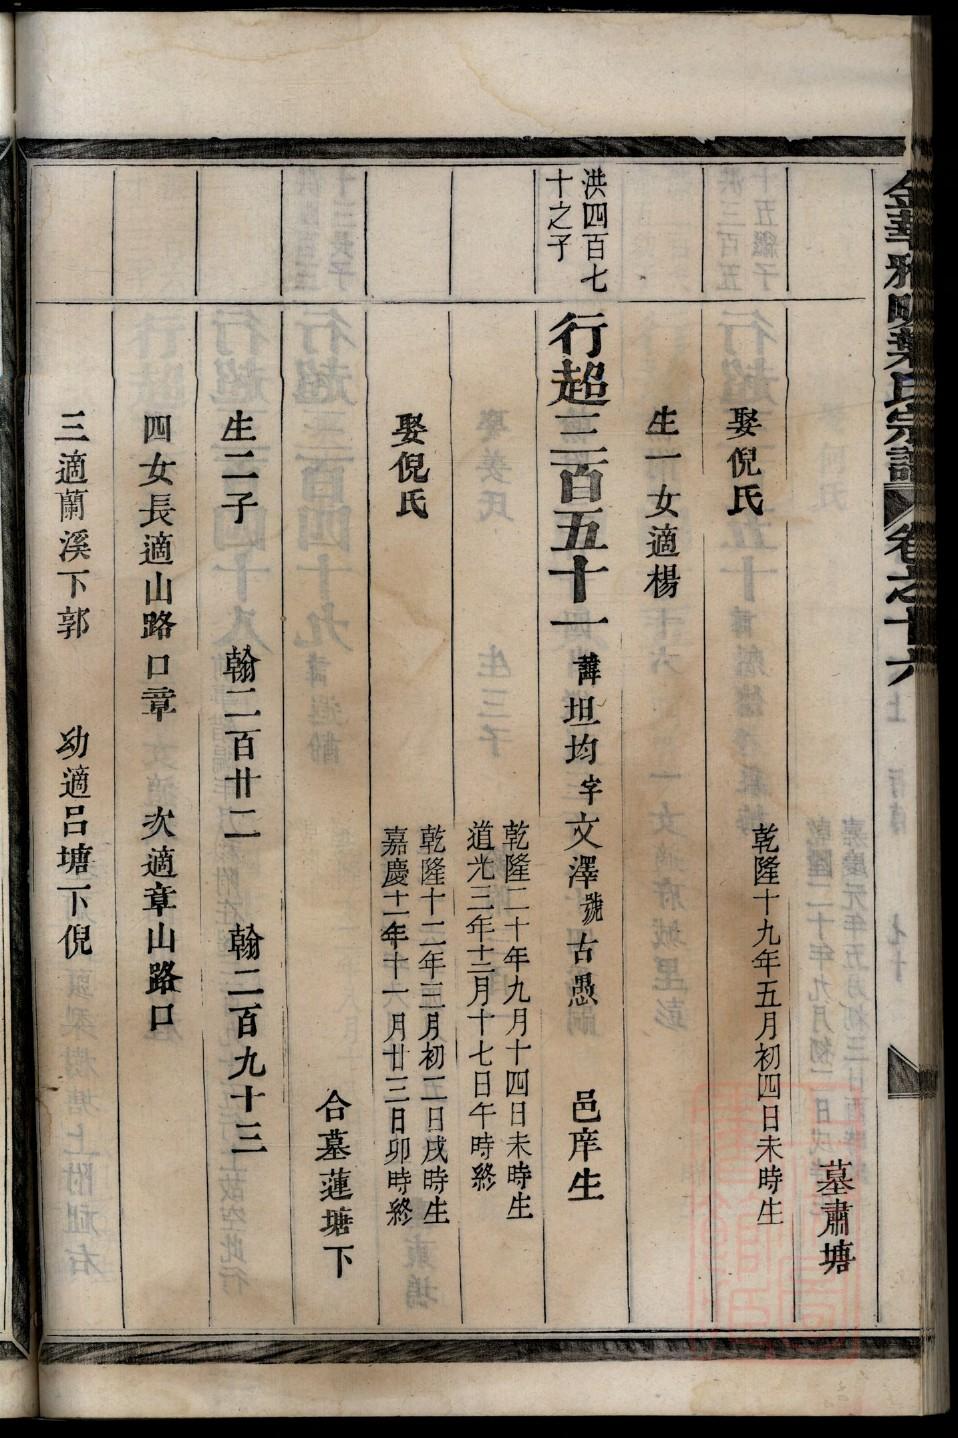 金華雅畈葉氏宗譜 卷之十六
墓肅塘
娶倪氏 乾隆十九年五月初四日未時生
生一女適楊
洪四百七十之子
行超三百五十一 諱坦均字文澤號古愚 邑庠生
乾隆二十年九月十四日未時生
道光三年十二月十七日午時終
娶倪氏
乾隆十二年三月初二日戌時生
嘉慶十一年十一月廿三日卯時終
合墓蓮塘下
生二子 翰二百廿二 翰二百九十三
四女長適山路口章 次適章山路口
三適蘭溪下郭 幼適呂塘下倪